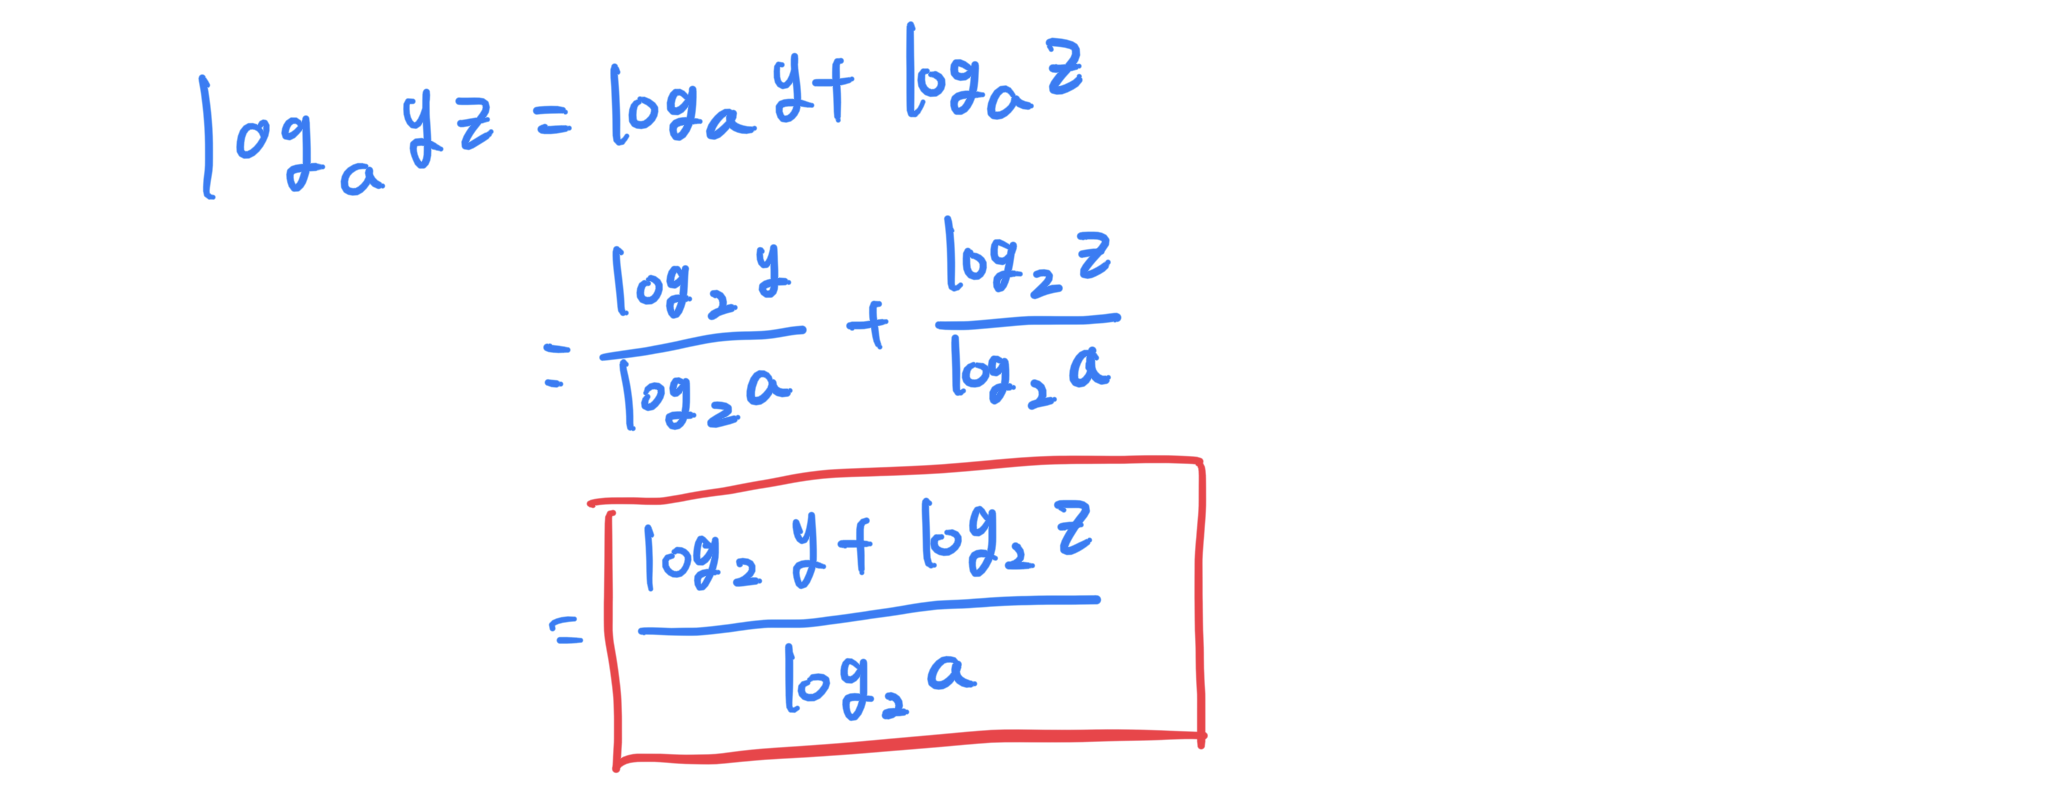 log_a yz = log_a y + log_a z
= \frac{log_2 y}{log_2 a} + \frac{log_2 z}{log_2 a}
= \frac{log_2 y + log_2 z}{log_2 a}